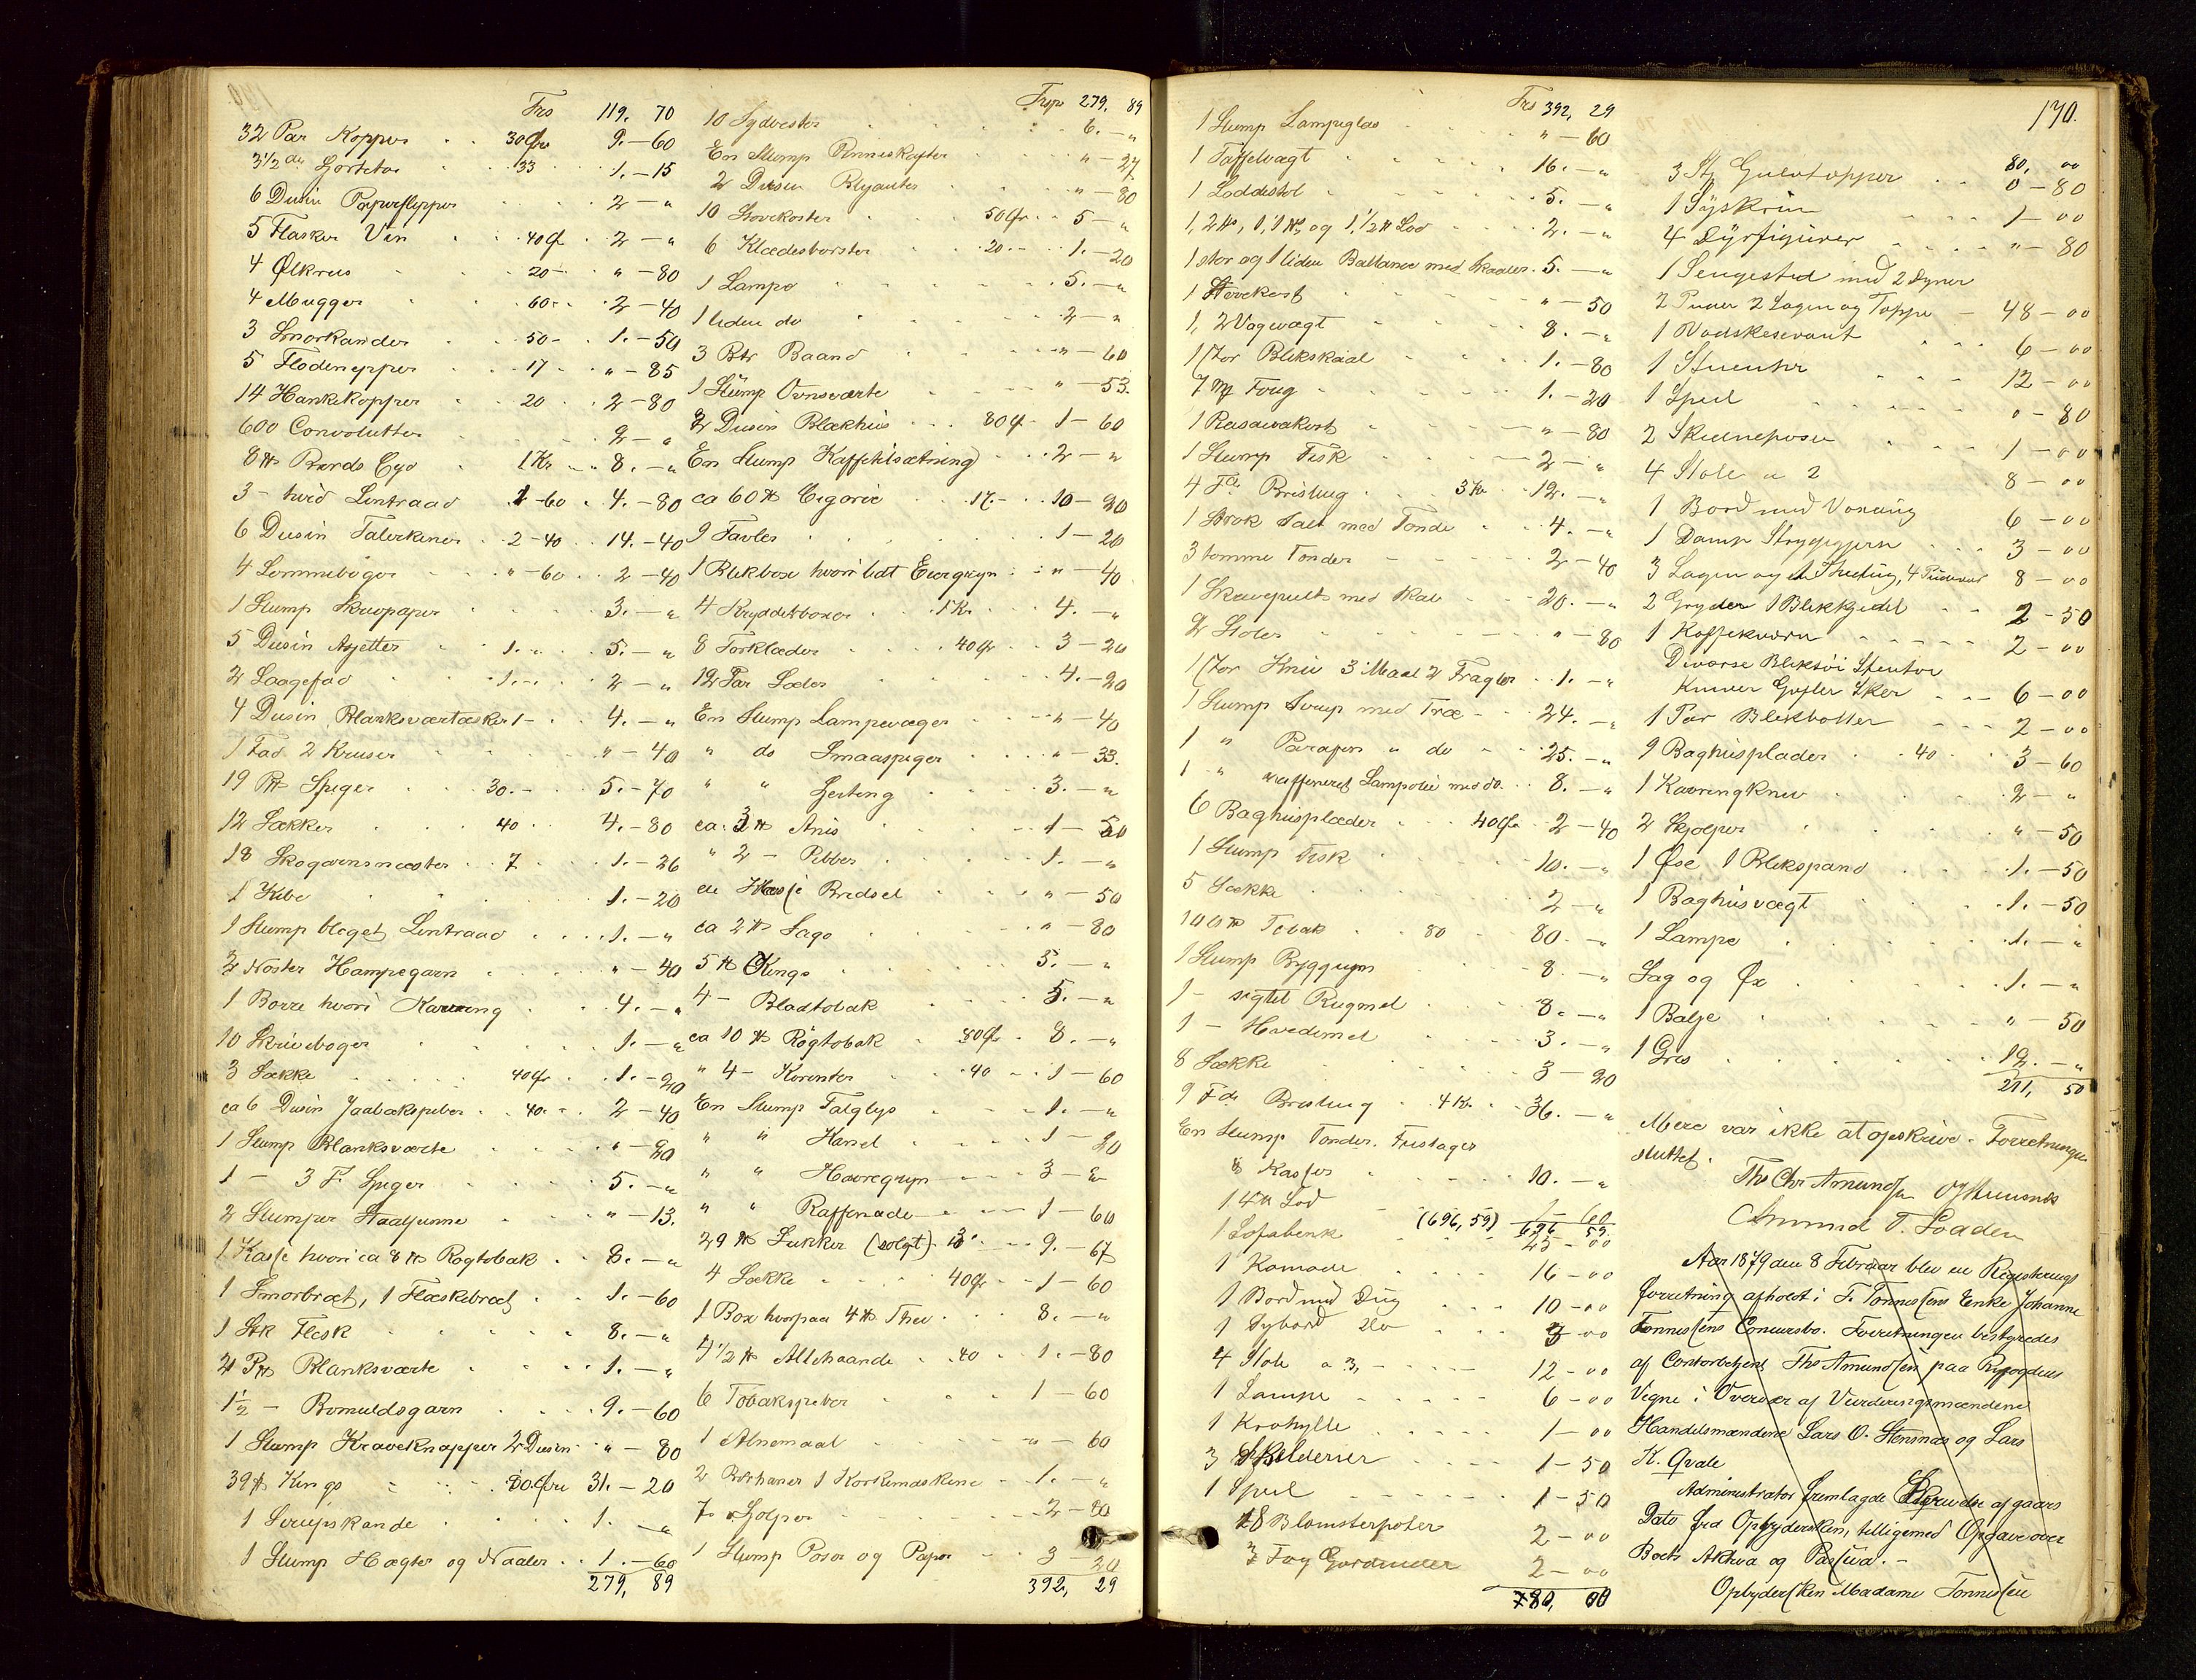 Frs 119. 70
32 Par Kopper . . 30 Øre 9. — 60
3½ ds . . 33 1. — 15
6 Dusin Papirflipper . . 2 — "
5 Flasker Vin . . 40 Ø . 2 — "
4 Ølkrus . . 20 — . " — 80
4 Mugger . . 60 . . 2 — 40
3 Smørkander . . 50 - . 1. — 50
5 Flødenepper . . 17 . " — 85
14 Hankekopper . . 20 . . 2 — 80
600 Convolutter . . 2 — "
8 ℔ . 1 Kr . . 8. — "
3 - hvid Lintraad 1-60 . 4. — 80
6 Dusin Talerkener . . 2-40 . . 14. — 40
4 Lommebøger . . " — 60 . . 2 — 40
1 Slump Skrivpapir . . 3. — "
5 Dusin Asjetter . . 1. - . . 5. — "
2 Laagefad . . 1. - . . 2 — "
4 Dusin Blanksværtæsker 1 - . . 4. — "
1 Fad 2 Kruser . . " — 40
19 ℔ Spiger . . 30. - . . 5. — 70
12 Sækker . . 40 . . 4. — 80
18 Skogarnsnøster . . 7 . . 1. — 26
1 Kibe . . 1. — 20
1 Slump bleget Lintraad . . 1. — "
2 Nøster Hampegarn . . " — 40
1 Børre hvori Kavring . . 4. — "
10 Skrivebøger . . 1. — "
3 Sække . . 40 Ør . . 1. — 20
ca 6 Dusin Jaabækspiber . . 40. . 2 — 40
1 Slump Blanksværte . . " — 80
1 — 3 F. Spiger . . 5. — "
2 Slumper Staalpenne . . " — 13.
1 Kasse hvori ca 8 ℔ Røgtobak . . 8. — "
1 Smørbræt, 1 Flæskebræt . . 1. — 60
1 Stk Flesk . . 8. — "
4 Pk Blanksværte . . 1. — "
1½ — Bomuldsgarn . . 9. — 60
1 Slump Kraveknapper 2 Dusin . " — 80
39 ℔ Kings . . 80 Øre 31. — 20
1 Sirupskande . . 1. — "
1 Slump Hægter og Naaler . . 1. — 60
279, 89
Frsp 279. 89
10 Sydvester . . 6. — "
En Slump Penneskafter . . " — 27
2 Dusin Blyanter . . " — 80
10 Sovekoster . . 50 Ør . . 5 — "
6 Klædesborster . . 20. — . 1. — 20
1 Lampe . . 5. — "
1 liden do . . 2 — "
3 Btr Baand . . " — 60
1 Slump Ovnsværte . . " — 53.
2 Dusin Blækhus . . 80 Ø . 1 — 60
En Slump Kaffetilsætning . . 2 — "
ca 60 ℔ Cigorie . . 17. - . . 10 — 20
9 Tavler . . 1 — 20
1 Blikboxe hvori lidt Eiergryn . . " — 40
4 Krydderboxer . . 1 Kr . . 4. — "
8 Forklæder . . 40 Ør . . 3 — 20
12 Par Sæler . . 4. — 20
En Slump Lampevæger . . " — 40
" do Smaaspiger . . " — 33.
" " Gesting . . 3. — "
ca. 3 ℔ Anis . . 1 — 50
" 2 — Pebber . . 1. — "
en Kasse Bredsel . . " — 50
ca 2 ℔ Sago . . " — 80
5 ℔ Kings . . 5. — "
4 — Bladtobak . . 5. — "
ca 10 ℔ Røgtobak . . 80 Ør . 8. — "
" 4 — Korinter . . 40 . . 1 — 60
En Slump Talglys . . 1. — "
" " Kanel . . 1 — 20
" " Havregryn . . 3 — "
" " Raffenade . . 1 — 60
29 ℔ Sukker (solgt) . . 9. — 67
4 Sække . . 40 Ør . . 1 — 60
1 Box hvorpaa 4 ℔ Thee . . 8. — "
4½ ℔ Allehaande . . 40 . . 1. — 80
6 Tobakspiber . . 1 — 60
1 Alnemaal . . " — 60
2 1 Korkemaskine . . 1. — "
7 Golper . . 2 — 80
1 Slump Poser og Papir . . 3 — 20
392, 29
Frs 392, 29
1 Slump Lampeglas . . " — 60
1 Taffelvægt . . 16. — "
1 Loddestol . . 5. — "
1, 2 ℔, 1, 1 ℔, og 1, ½ ℔ Lod . . 2. — "
1 stor og 1 liden Ballance med Skaaler . 5. — "
1 Stovekost . . " — 50
1, 2 Vogvægt . . 8. — "
1 stor Blikskaal . . 1. — 80
7 Toug . . 1. — 20
1 Rasavakost . . " — 80
1 Slump Fisk . . 2 — "
4 Fd Brisling . . 3 Kr . . 12. — "
1 Strøk Salt med Tønde . . 4. — "
3 tomme Tønder . . 2 — 40
1 Skrivepult med Skab . . 20. — "
2 Stoler . . " — 80
1 stor Kniv 3 Maal 2 Tragter . . 1. — "
1 Slump Sirup med Træ . . 24. — "
1 " Parafin " do . . 25. — "
1 " raffineret Lampolie med do. . . 8. — "
6 Baghusplæder . . 40 Ør . 2 — 40
1 Slump Fisk . . 10. — "
5 Sække . . 2 — "
100 ℔ Tobak . . 80 . . 80. — "
1 Slump Byggryn . . 8. — "
1 — sigtet Rugmel . . 8. — "
1 — Hvedemel . . 3. — "
8 Sække . . 3 — 20
9 Fd Brisling . . 4 Kr . . 36. — "
En Slump Tønder. Fustager
8 Kasser . . 10. — "
1 4 ℔ Lod . . 1 — 60
(696,59) 696 59
1 Sofabenk . . 25 — 00
1 Komode . . 16 — 00
1 Bord med Dug . . 10 — 00
1 Sybord do . . 3 — 00
4 Stole a 3, - . . 12 — 00
1 Lampe . . 6 — 00
1 Krohylle . . 1 — 00
3 Skilderier . . 1 — 50
1 Speil . . 1 — 50
18 Blomsterpoter . . 2 — 00
3 Fag Gardiner . . 2 — 00
80, 00
170.
80, 00
3 Stg Gulvtepper . . 0 — 80
1 Syskrin . . 1 — 00
4 Dyrfigurer . . " — 80
1 Sengested med 2 Dyner
2 Puder 2 Lagen og Teppe — 48 — 00
1 Vadskeservant . . 6 — 00
1 Stueuhr . . 12 — 00
1 Speil . . 0 — 80
2 Skindposer . . 1 — 00
4 Stole a 2 . . 8 — 00
1 Bord med Voxdug . . 6 — 00
1 Damp Strygejern . . 3 — 00
3 Lagen og , 4 Pudevar 8 — 00
2 Gryder 1 Blikkjedel . . 2 — 50
1 Kaffekværn . . 2 — 00
Diverse Bliktøi Stentøi
Kniver Gafler Sker . . 6 — 00
1 Par Blikbøtter . . 2 — 00
9 Baghusplader . . 40 . 3 — 60
1 Kavringkniv . . 2 — "
2 Skjolper . . " — 50
1 Øse, 1 Blikspand . . 1. — 50
1 Baghusvægt . . 1. — 50
1 Lampe . . 1. — "
Sag og Øx . . 1. — "
1 Balje . . " — 50
1 Gris . . 12. — "
211, 50
Mere var ikke at opskrive. Forretningen
sluttet.
Ths Chr Amundsen
Amund T. Loaden
Aar 1879 den 8 Februar blev en Registrerings
forretning afholdt i F. Tønnesens Enke Johanne
Tønnesens Concursbo. Forretningen bestyredes
af Contorbetjent Ths Amundsen paa Byfogdens
Vegne i Overvær af Vurderingsmændene
Handelsmændene Lars O. Stensnæs og Lars
K. Qvale
Administrator fremlagde Skrivelse af gaars
Dato fra Opbydersken, tilligemed Opgave over
Boets Aktiva og Passiva. —
Opbydersken Madame Tønnesen